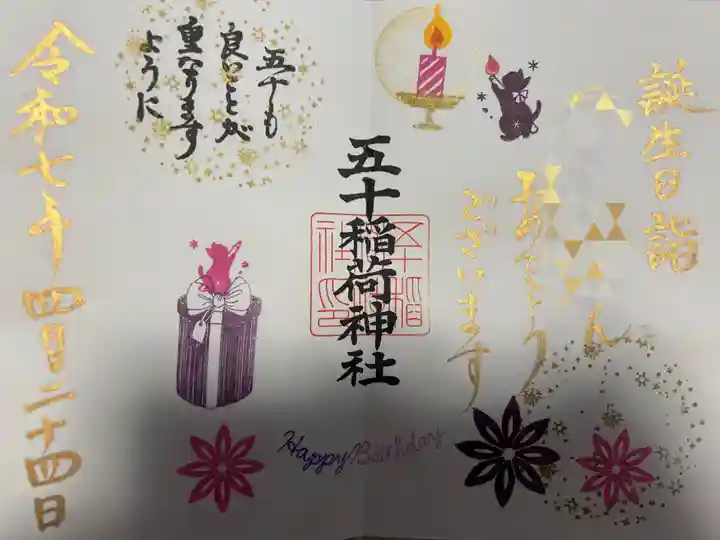 誕生日詣
おめでとう
ございます
五十稲荷神社
Happy Birthday
五十も
良いことが
重なります
ように
令和七年四月二十四日